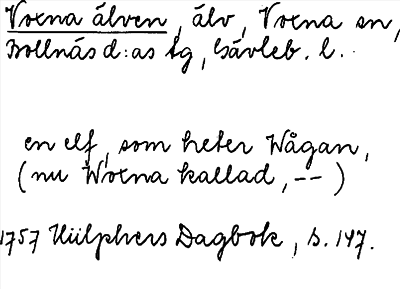 Voxna älven, älv, Voxna sn,
Bollnäs d:as tg, Gävleb. l.
en elf, som heter Wågan,
(nu Woxna kallad, -- )
1757 Hülphers Dagbok, s. 147.